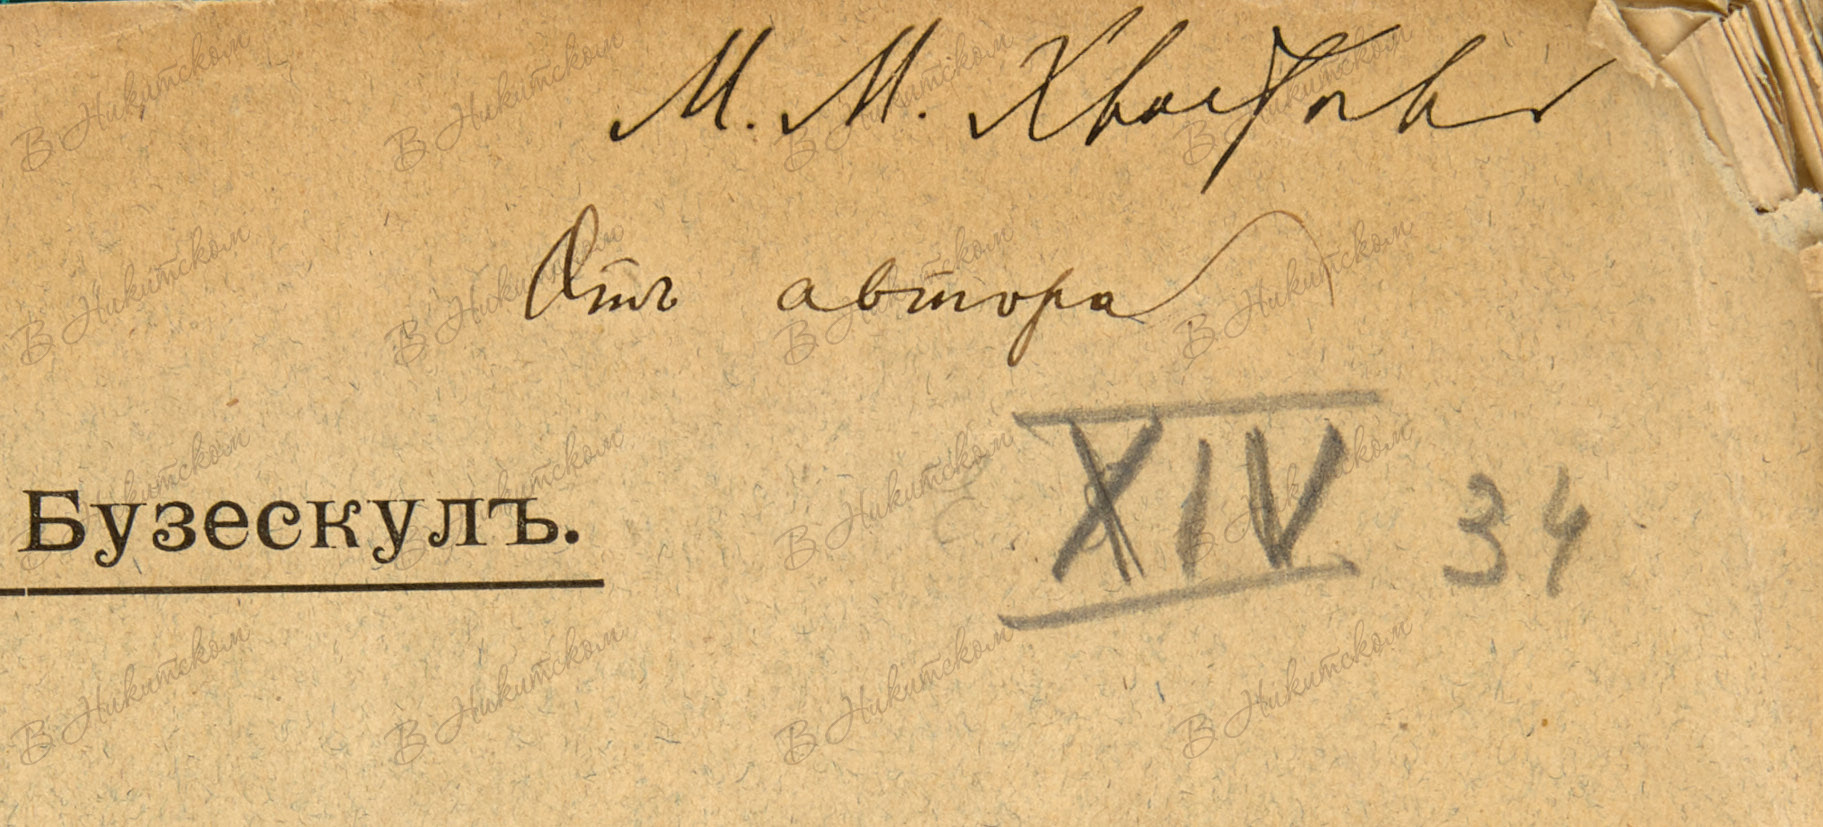 М. М. Хвостову
Отъ автора
Бузескулъ.
XIV 34
В Никитском